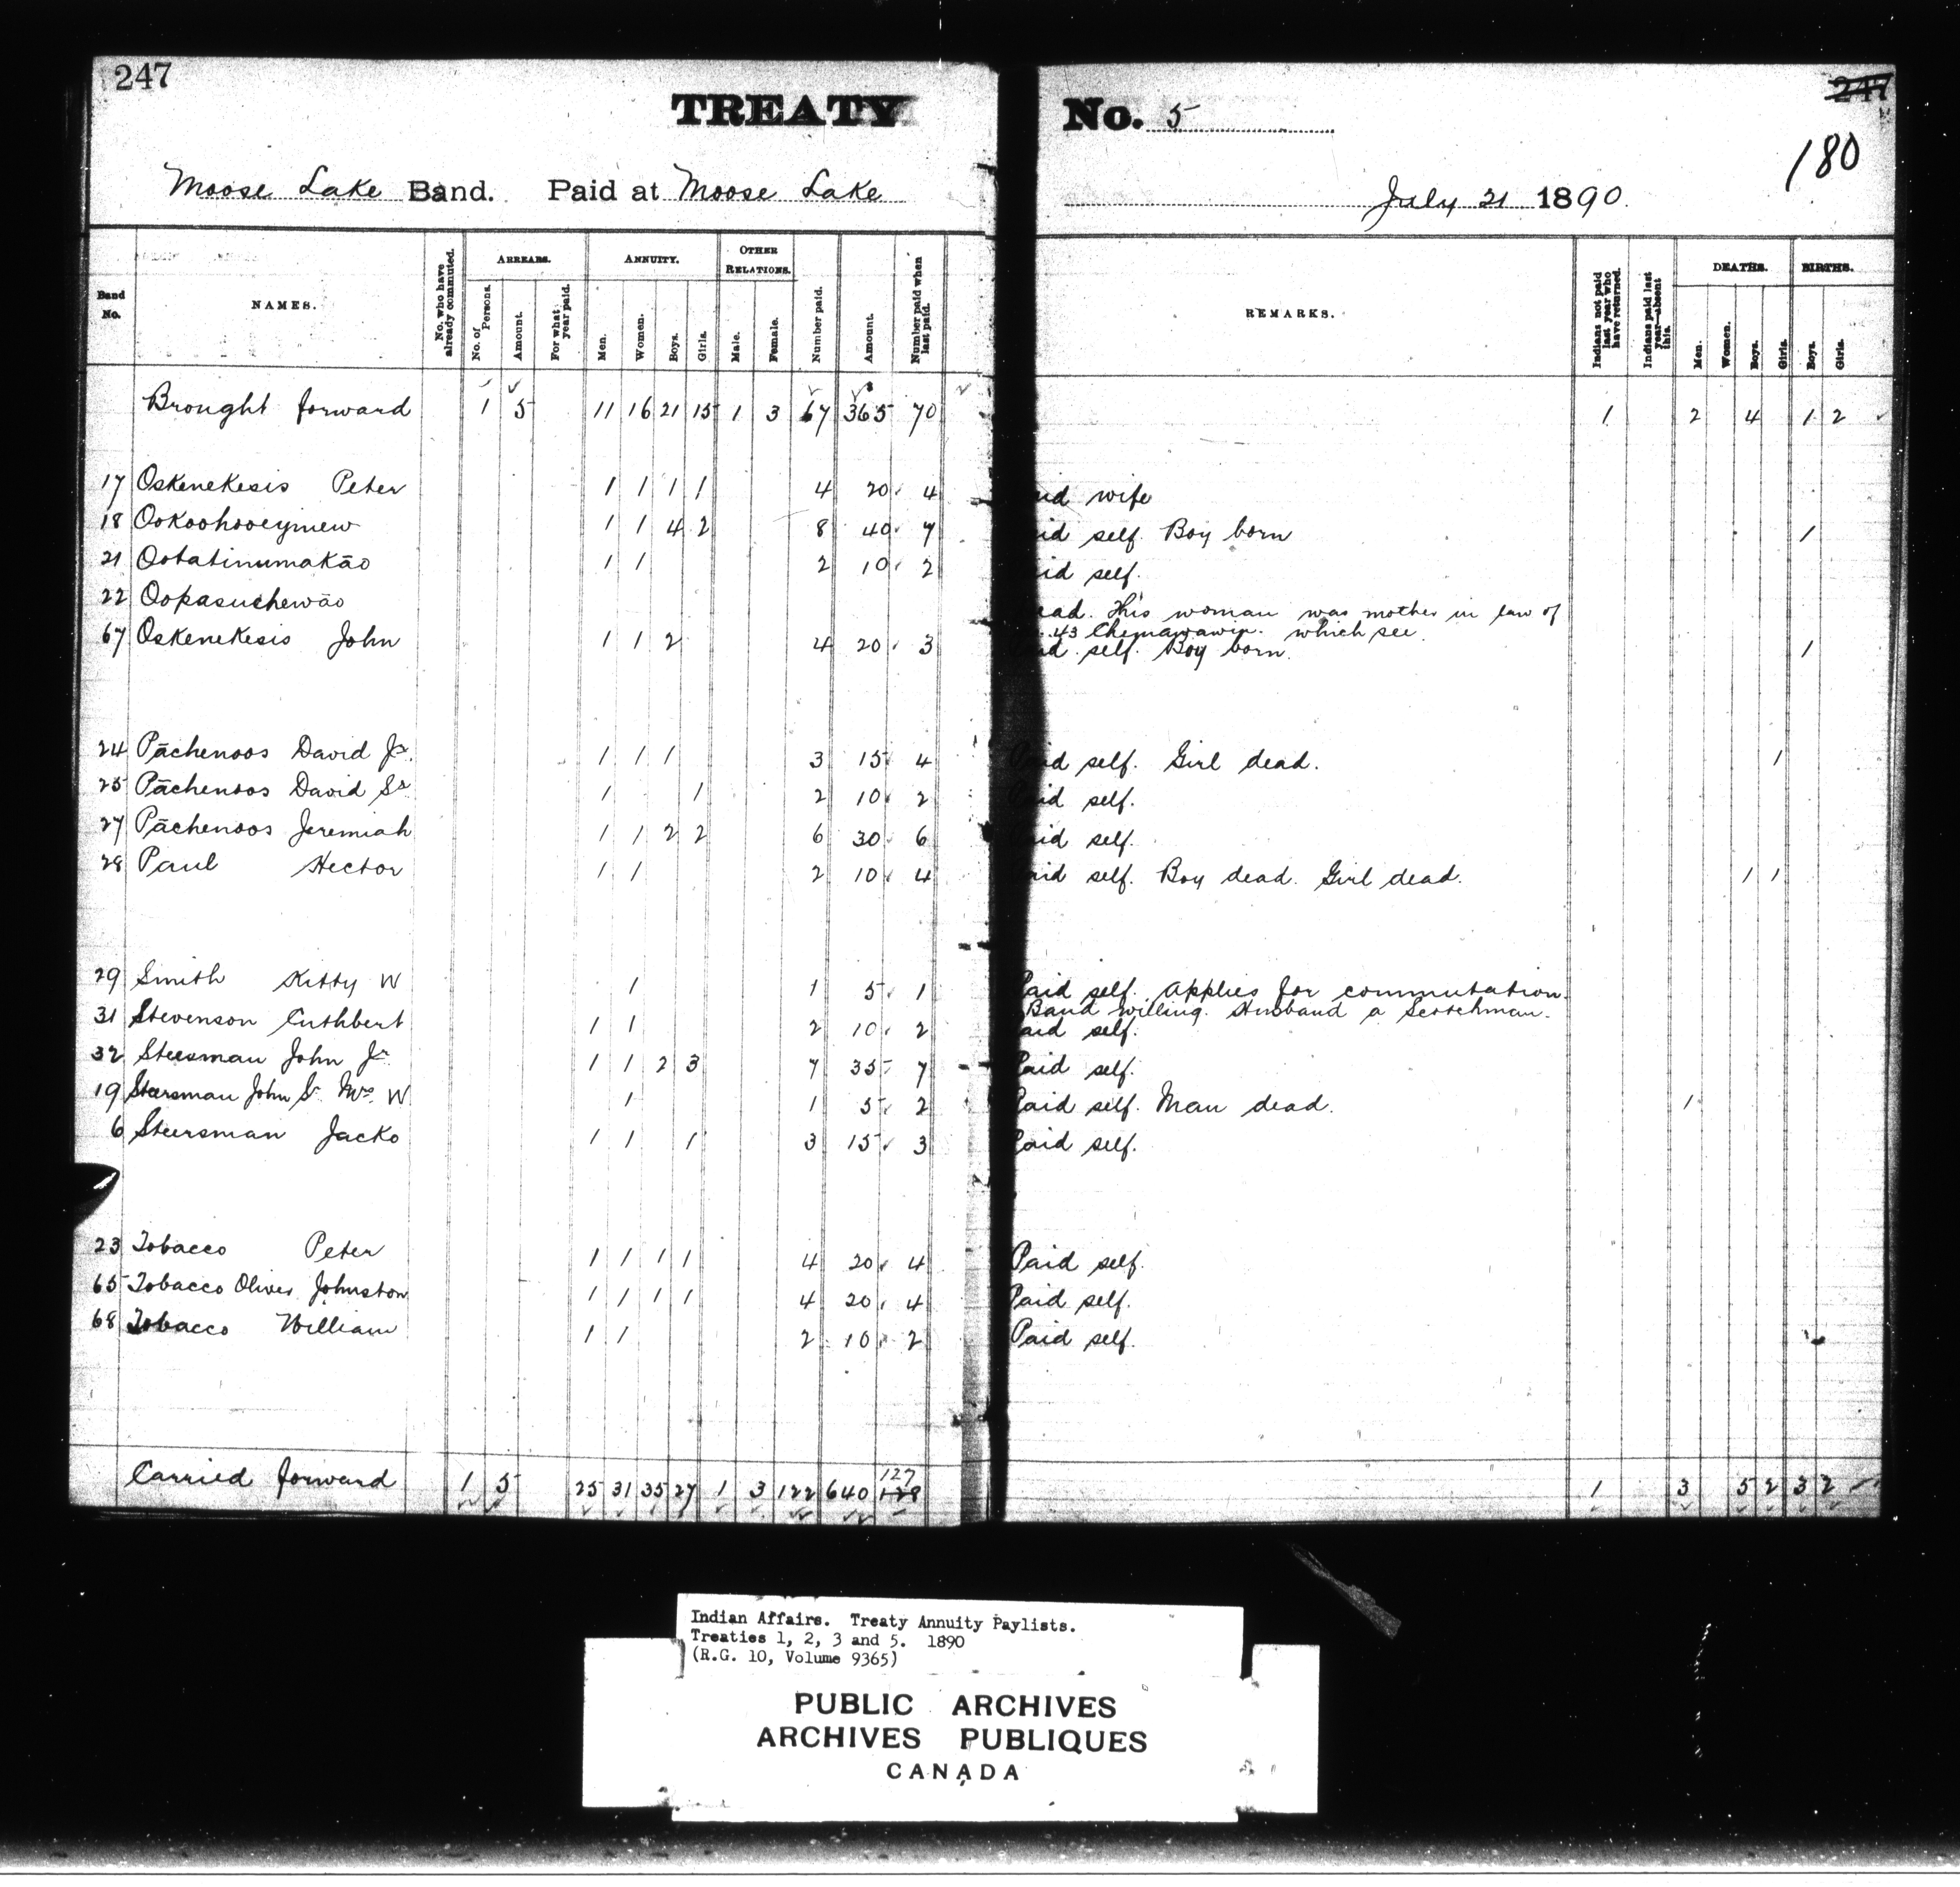 247
247
TREATY No. 5
180
Moose Lake Band. Paid at Moose Lake
July 21 1890.
Band No.
NAMES.
No. who have already commuted.
ARREARS.
No. of Persons.
Amount.
For what year paid.
ANNUITY.
Men.
Women.
Boys.
Girls.
OTHER RELATIONS.
Male.
Female.
Number paid.
Amount.
Number paid when last paid.
REMARKS.
Indians not paid last year who have returned.
Indians paid last year—absent this.
DEATHS.
Men.
Women.
Boys.
Girls.
BIRTHS.
Boys.
Girls.
Brought forward 1 5 11 16 21 15 1 3 67 365 70 1 2 4 1 2
17 Oskenekesis Peter 1 1 1 1 4 20 4 Paid wife
18 Ookoohooeymew 1 1 4 2 8 40 7 Paid self. Boy born 1
21 Ootatinumakāo 1 1 2 10 2 Paid self.
22 Oopasuchewāo Dead. This woman was mother in law of
43 Chemawawin. which see.
67 Oskenekesis John 1 1 2 4 20 3 Paid self. Boy born. 1
24 Pāchenoos David Jr. 1 1 1 3 15 4 Paid self. Girl dead. 1
25 Pāchenoos David Sr 1 1 2 10 2 Paid self.
27 Pāchenoos Jeremiah 1 1 2 2 6 30 6 Paid self.
28 Paul Hector 1 1 2 10 4 Paid self. Boy dead. Girl dead. 1 1
29 Smith Kitty W 1 1 5 1 Paid self. Applies for commutation.
Band willing. Husband a Scotchman.
31 Stevenson Cuthbert 1 1 2 10 2 Paid self.
32 Steersman John Jr 1 1 2 3 7 35 7 Paid self.
19 Steersman John Sr. Mrs. W. 1 1 5 2 Paid self. Man dead. 1
6 Steersman Jacko 1 1 1 3 15 3 Paid self.
23 Tobacco Peter 1 1 1 1 4 20 4 Paid self.
65 Tobacco Oliver Johnston 1 1 1 1 4 20 4 Paid self.
68 Tobacco William 1 1 2 10 2 Paid self.
127
Carried forward 1 5 25 31 35 27 1 3 122 640 128 1 3 5 2 3 2
Indian Affairs. Treaty Annuity Paylists.
Treaties 1, 2, 3 and 5. 1890
(R.G. 10, Volume 9365)
PUBLIC ARCHIVES
ARCHIVES PUBLIQUES
CANADA